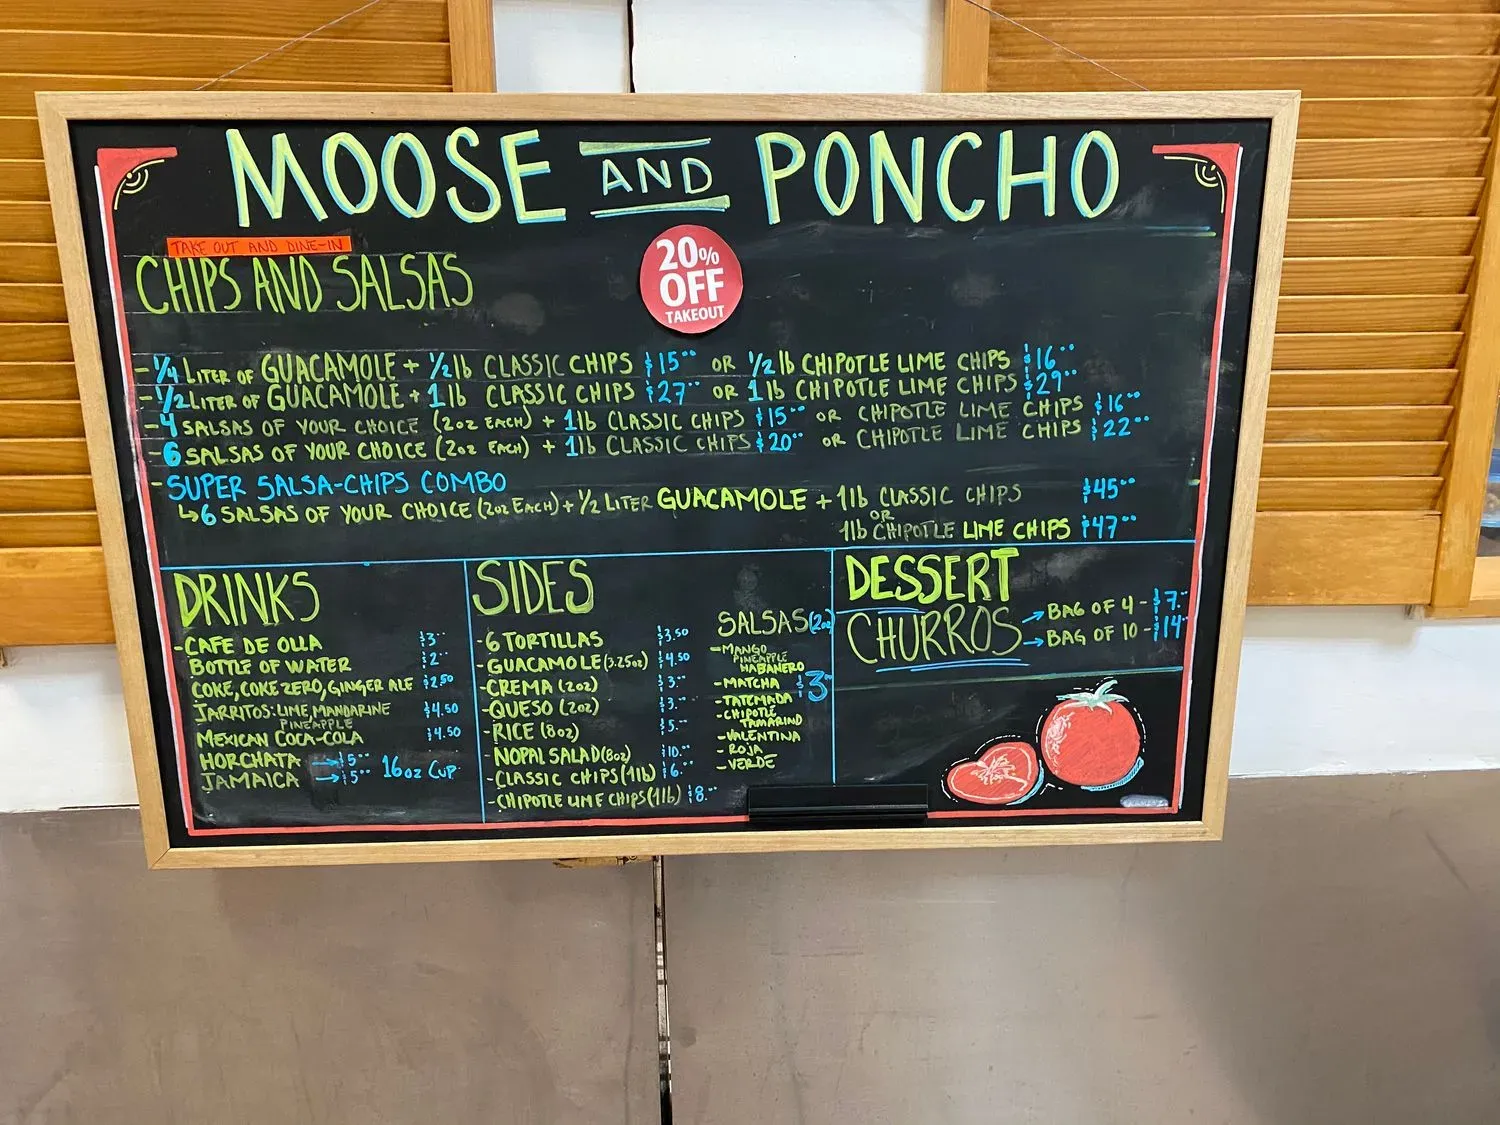 MOOSE AND PONCHO
TAKE OUT AND DINE-IN
CHIPS AND SALSAS
20%
OFF
TAKEOUT
- 1/4 LITER OF GUACAMOLE + 1/2 lb CLASSIC CHIPS $15.00 OR 1/2 lb CHIPOTLE LIME CHIPS $16.00
- 1/2 LITER OF GUACAMOLE + 1 lb CLASSIC CHIPS $27.00 OR 1 lb CHIPOTLE LIME CHIPS $29.00
- 4 SALSAS OF YOUR CHOICE (2oz EACH) + 1 lb CLASSIC CHIPS $15.00 OR CHIPOTLE LIME CHIPS $16.00
- 6 SALSAS OF YOUR CHOICE (2oz EACH) + 1 lb CLASSIC CHIPS $20.00 OR CHIPOTLE LIME CHIPS $22.00
- SUPER SALSA-CHIPS COMBO
↳ 6 SALSAS OF YOUR CHOICE (2oz EACH) + 1/2 LITER GUACAMOLE + 1lb CLASSIC CHIPS $45.00
OR
1lb CHIPOTLE LIME CHIPS $47.00
DRINKS
- CAFE DE OLLA $3.00
BOTTLE OF WATER $2.00
COKE, COKE ZERO, GINGER ALE $2.50
JARRITOS: LIME, MANDARINE $4.50
PINEAPPLE
MEXICAN COCA-COLA $4.50
HORCHATA → $5.00
JAMAICA → $5.00
16oz CUP
SIDES
- 6 TORTILLAS $3.50
- GUACAMOLE (3.25oz) $4.50
- CREMA (2oz) $3.00
- QUESO (2oz) $3.00
- RICE (8oz) $5.00
NOPAL SALAD (8oz) $10.00
- CLASSIC CHIPS (1lb) $6.00
- CHIPOTLE LIME CHIPS (1lb) $8.00
SALSAS (2oz)
- MANGO
PINEAPPLE
HABANERO
- MATCHA $3.00
- TATEMADA
- CHIPOTLE
TAMARIND
- VALENTINA
- ROJA
- VERDE
DESSERT
CHURROS
→ BAG OF 4 - $7.00
→ BAG OF 10 - $14.00